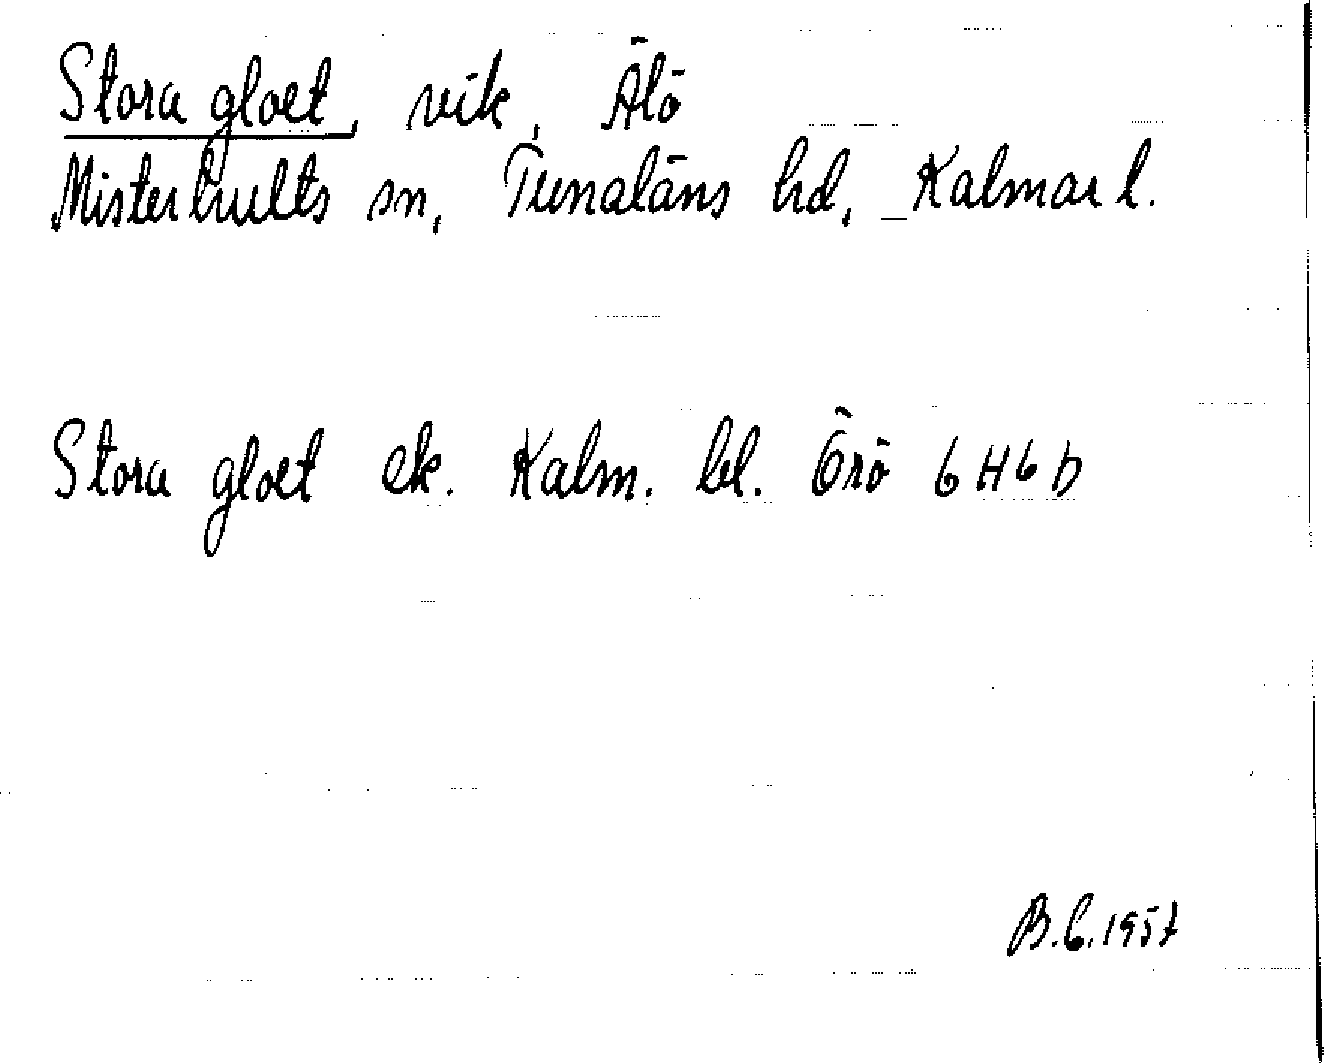 Stora gloet, vik, Älö
Misterhults sn, Tunaläns hd, Kalmar l.
Stora gloet ek. Kalm. bl. Örö 6 H 6 b
B.C. 1957